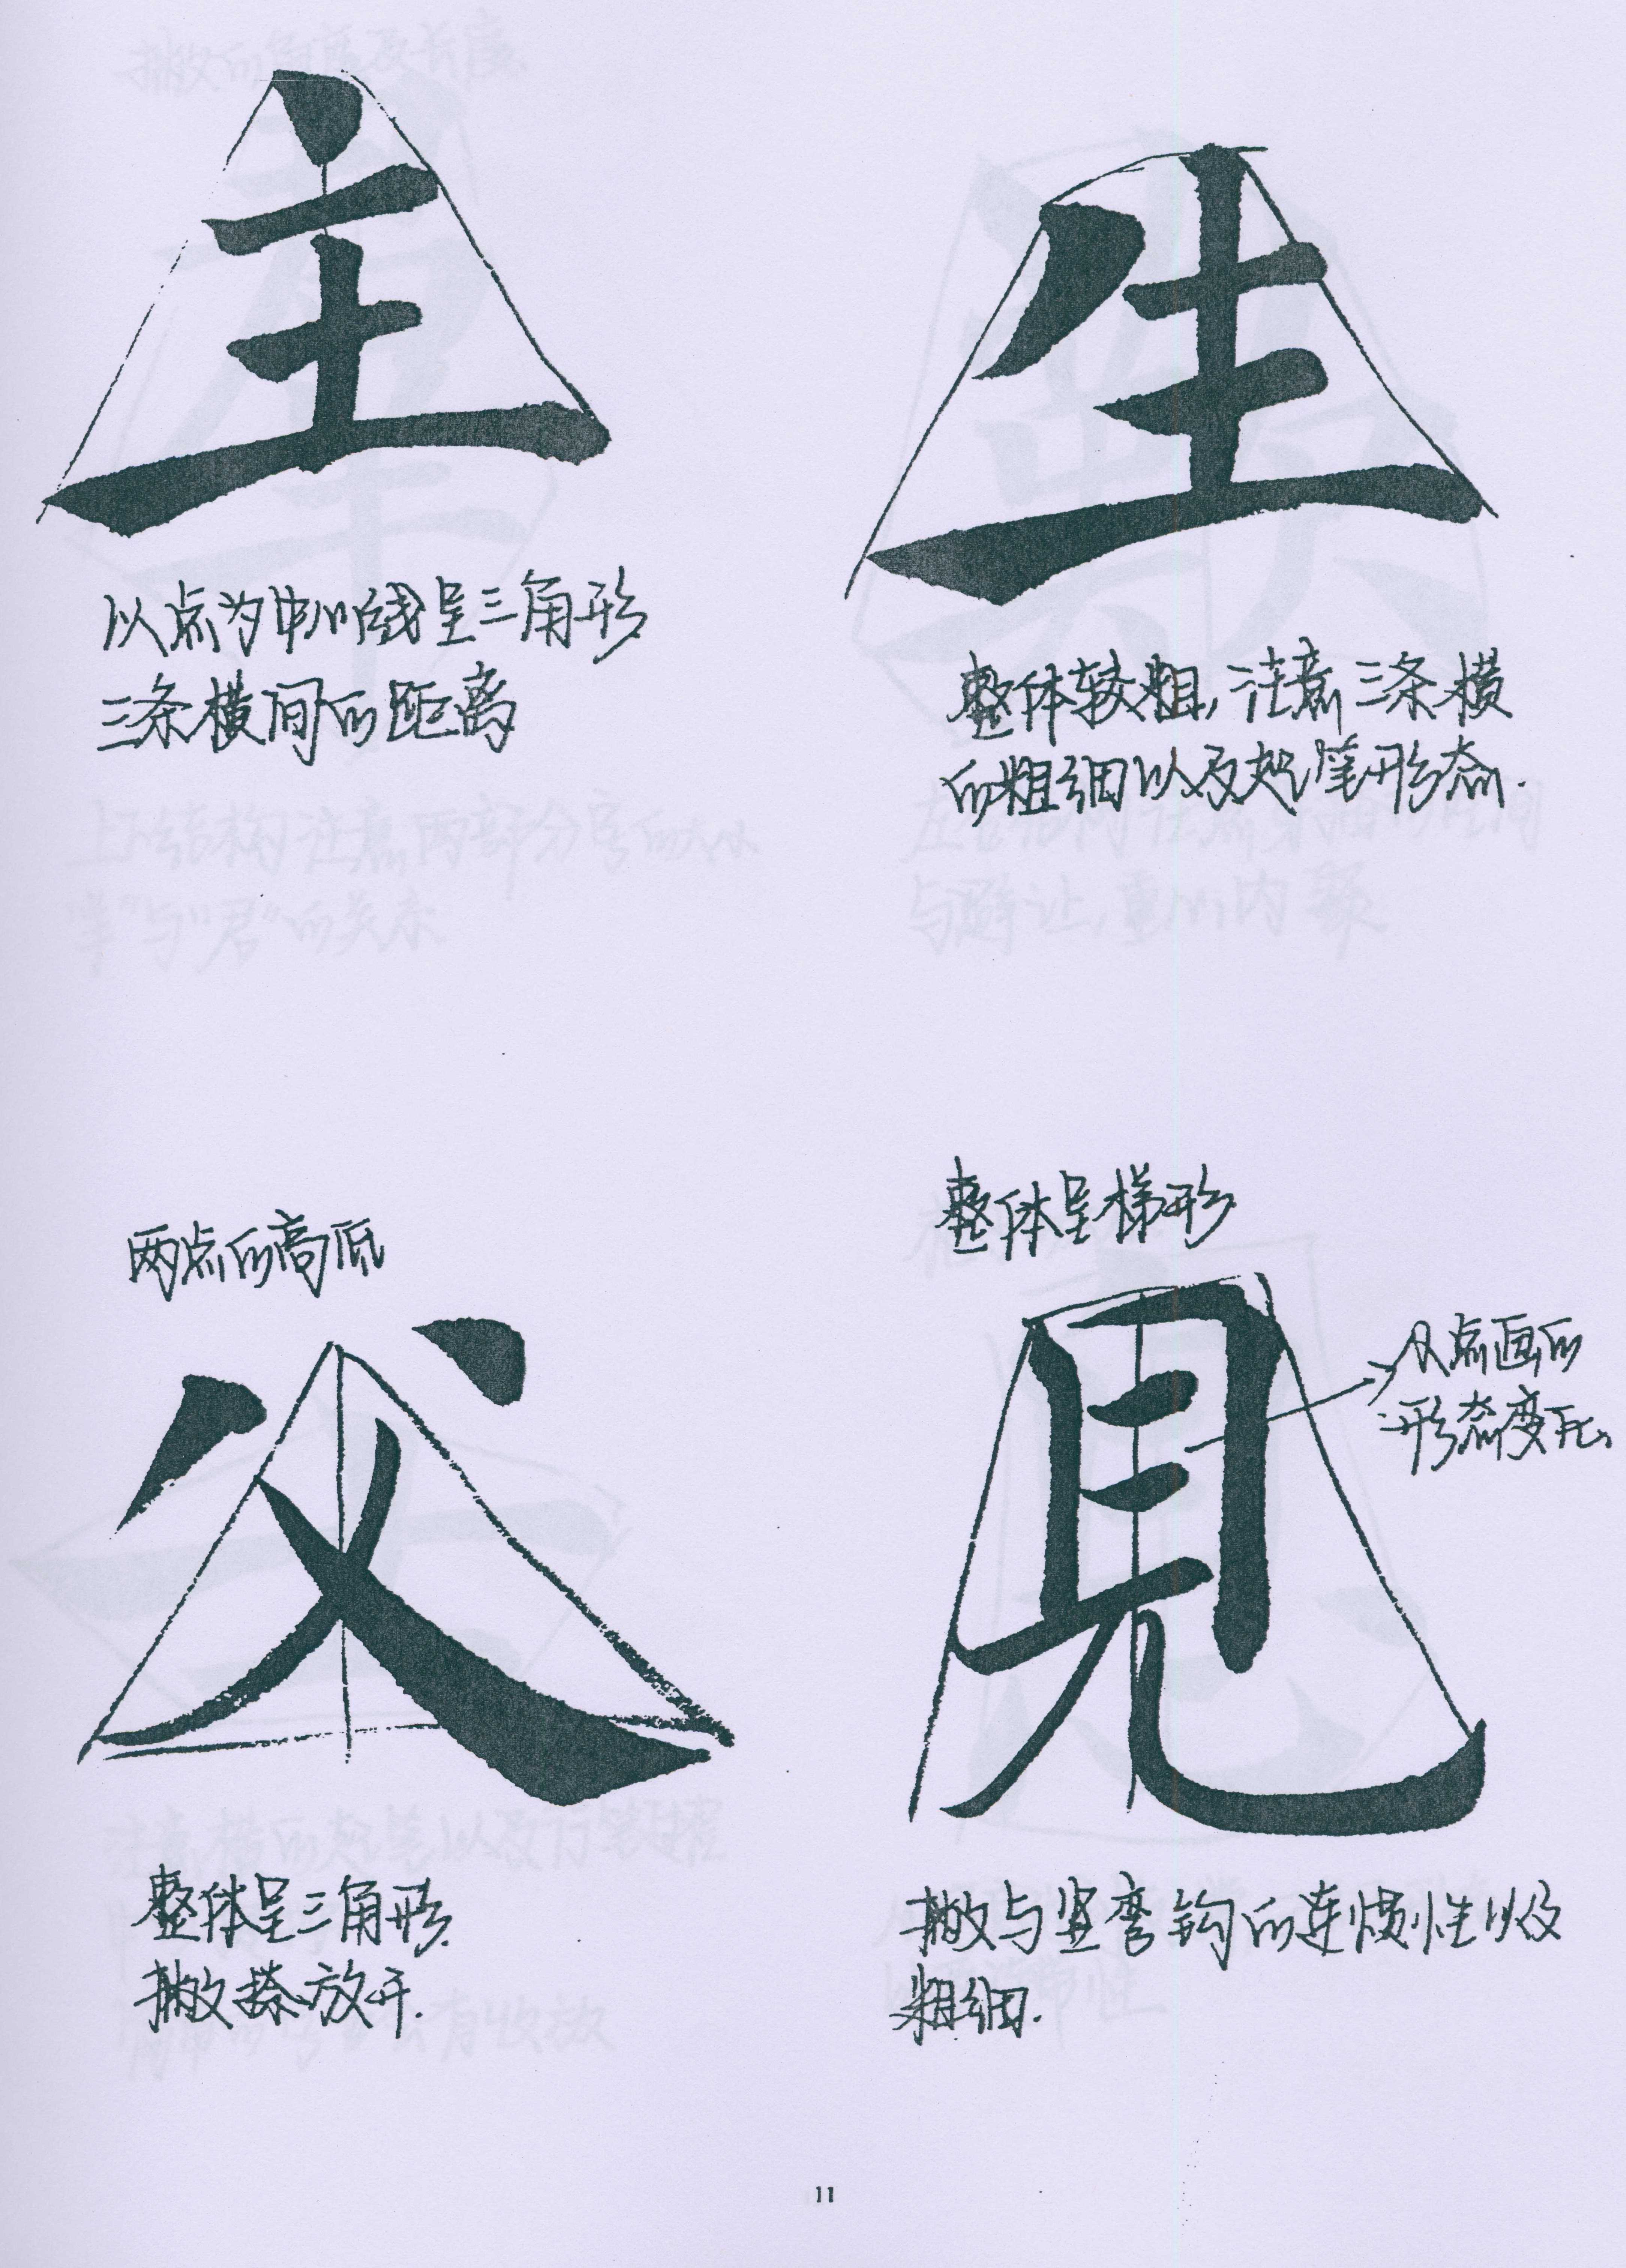 主
以点为中心线呈三角形
三条横间的距离
生
整体较粗,注意三条横
的粗细以及起笔形态.
两点的高低
父
整体呈三角形.
撇捺放开.
整体呈梯形
見
从点画的
形态变化
撇与竖弯钩的连惯性以及
粗细.
11